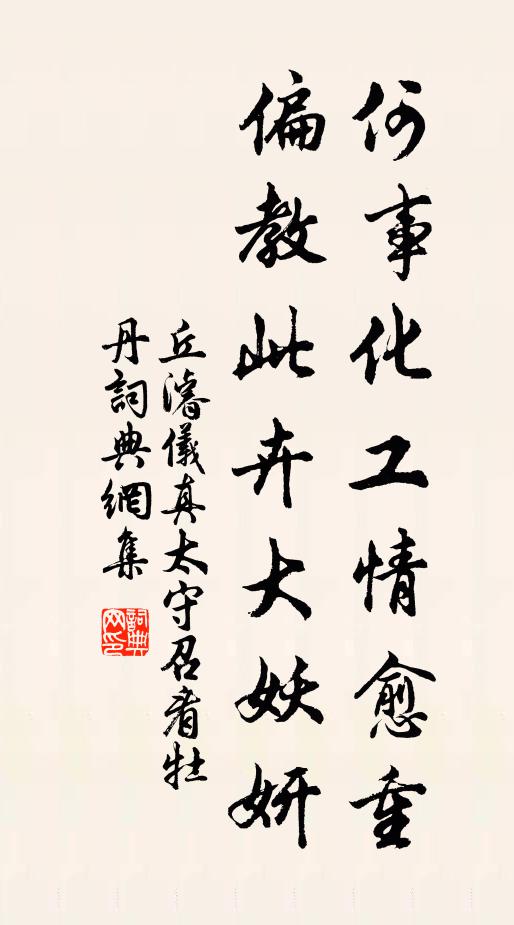 何事化工情愈重
偏教此卉大妖妍
丘濬儀真太守召看牡
丹詞典網集
詞典
网印